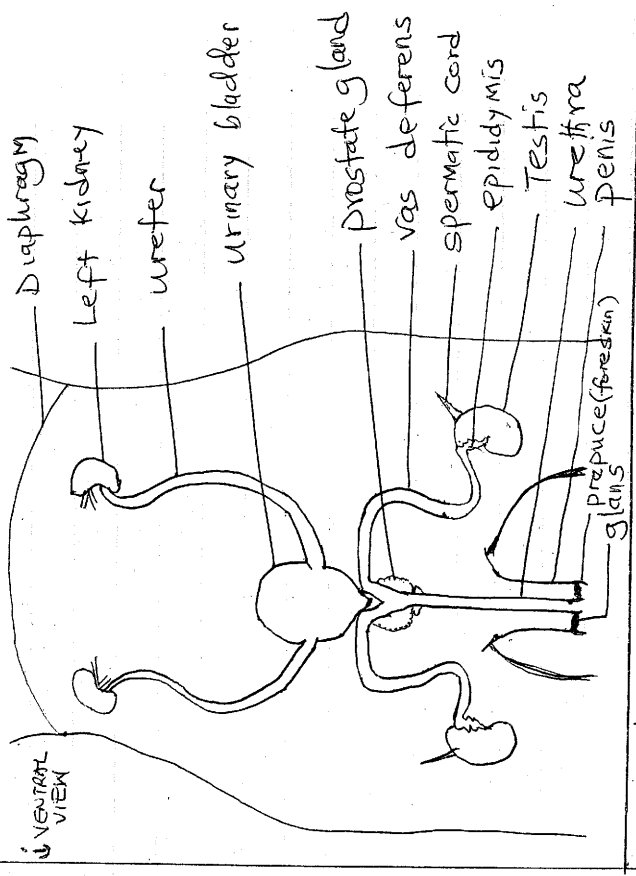 ↓ VENTRAL
VIEW
Diaphragm
Left Kidney
ureter
urinary bladder
prostate gland
vas deferens
spermatic cord
epididymis
Testis
urethra
penis
prepuce(foreskin)
glans